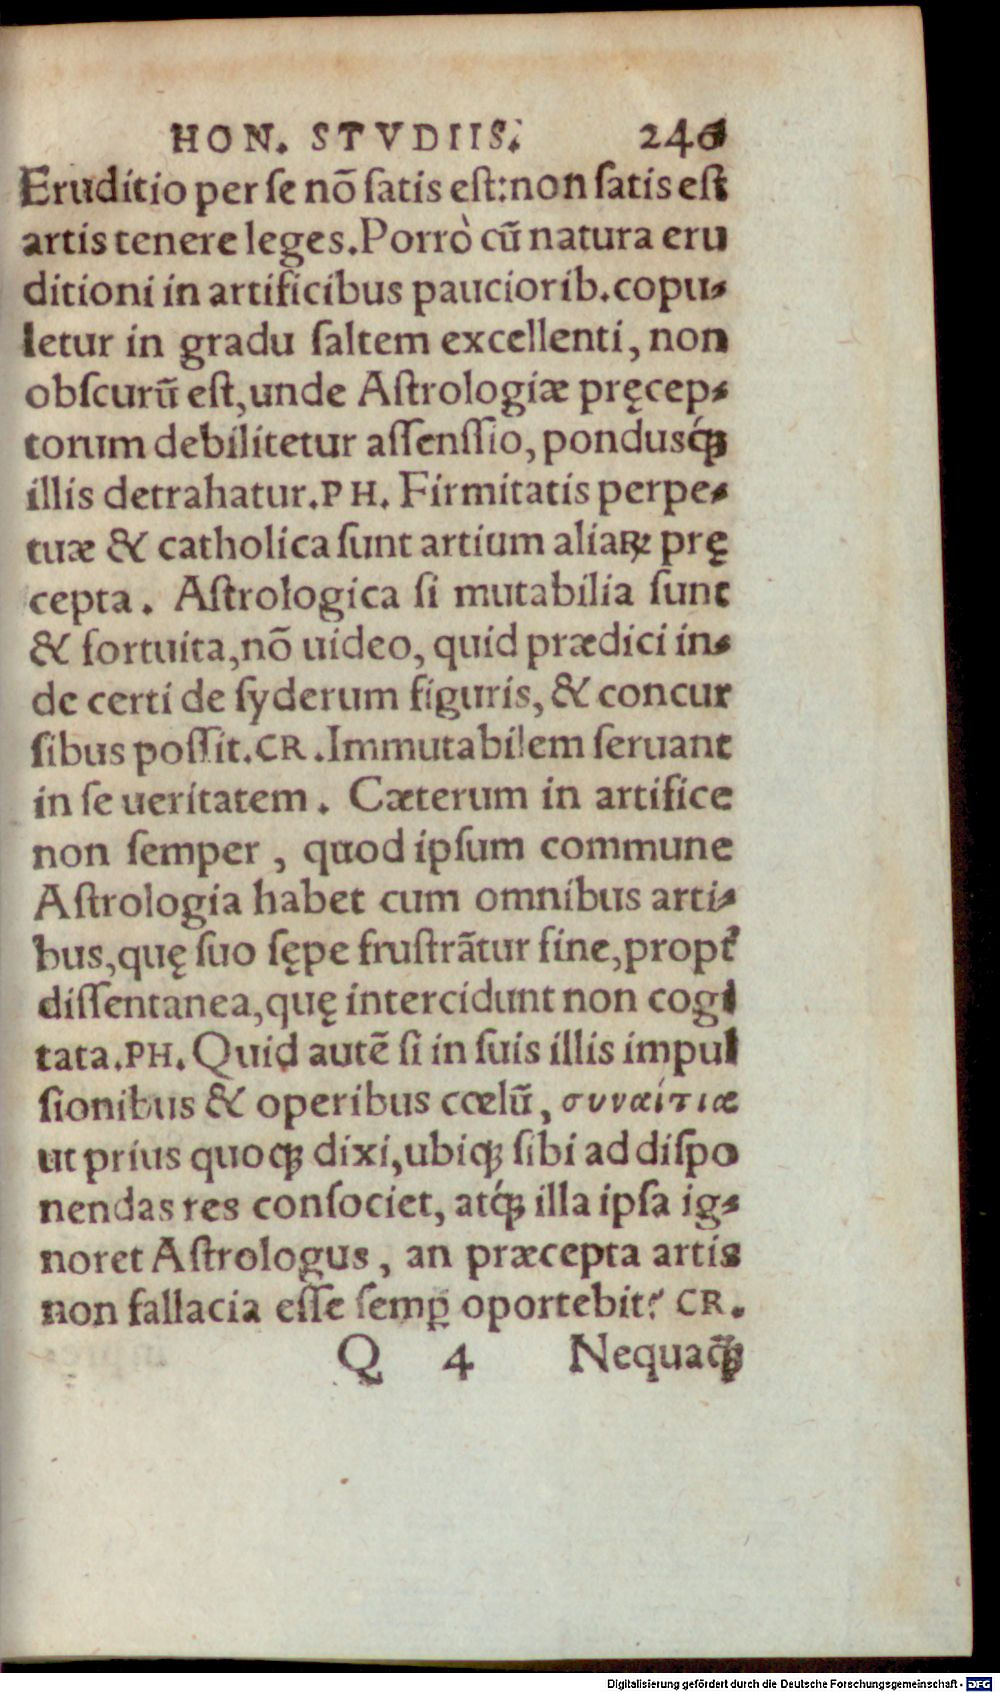 HON. STVDIIS. 246
Eruditio per se nõ satis est:non satis est
artis tenere leges.Porrò cũ natura eru
ditioni in artificibus pauciorib.copu-
letur in gradu saltem excellenti, non
obscurũ est,unde Astrologiæ pręcep-
torum debilitetur assenssio, pondusq́;
illis detrahatur.PH. Firmitatis perpe-
tuæ & catholica sunt artium aliaꝝ prę
cepta. Astrologica si mutabilia sunt
& fortuita,nõ uideo, quid prædici in-
de certi de syderum figuris, & concur
sibus possit.CR.Immutabilem seruant
in se ueritatem. Cæterum in artifice
non semper, quod ipsum commune
Astrologia habet cum omnibus arti-
bus,quę suo sępe frustrãtur fine,propt̃
dissentanea,quę intercidunt non cogi
tata.PH. Quid autẽ si in suis illis impul
sionibus & operibus cœlũ, συναίτια
ut prius quoq; dixi,ubiq; sibi ad dispo
nendas res consociet, atq́; illa ipsa ig-
noret Astrologus, an præcepta artis
non fallacia esse semꝑ oportebit? CR.
Q 4 Nequaq̃;
Digitalisierung gefördert durch die Deutsche Forschungsgemeinschaft - DFG